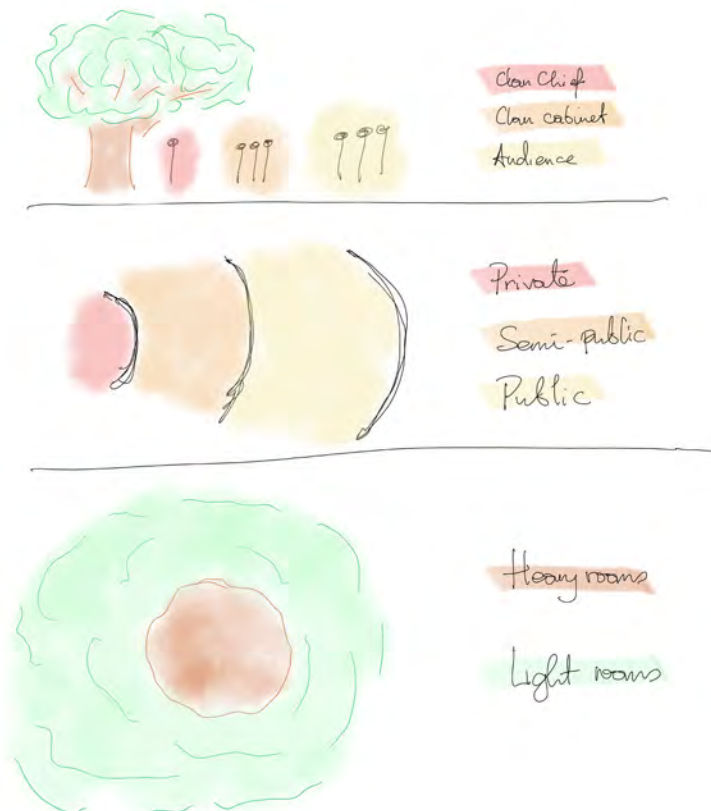 Clan Chief
Clan cabinet
Audience
Private
Semi-public
Public
Heavy rooms
Light rooms